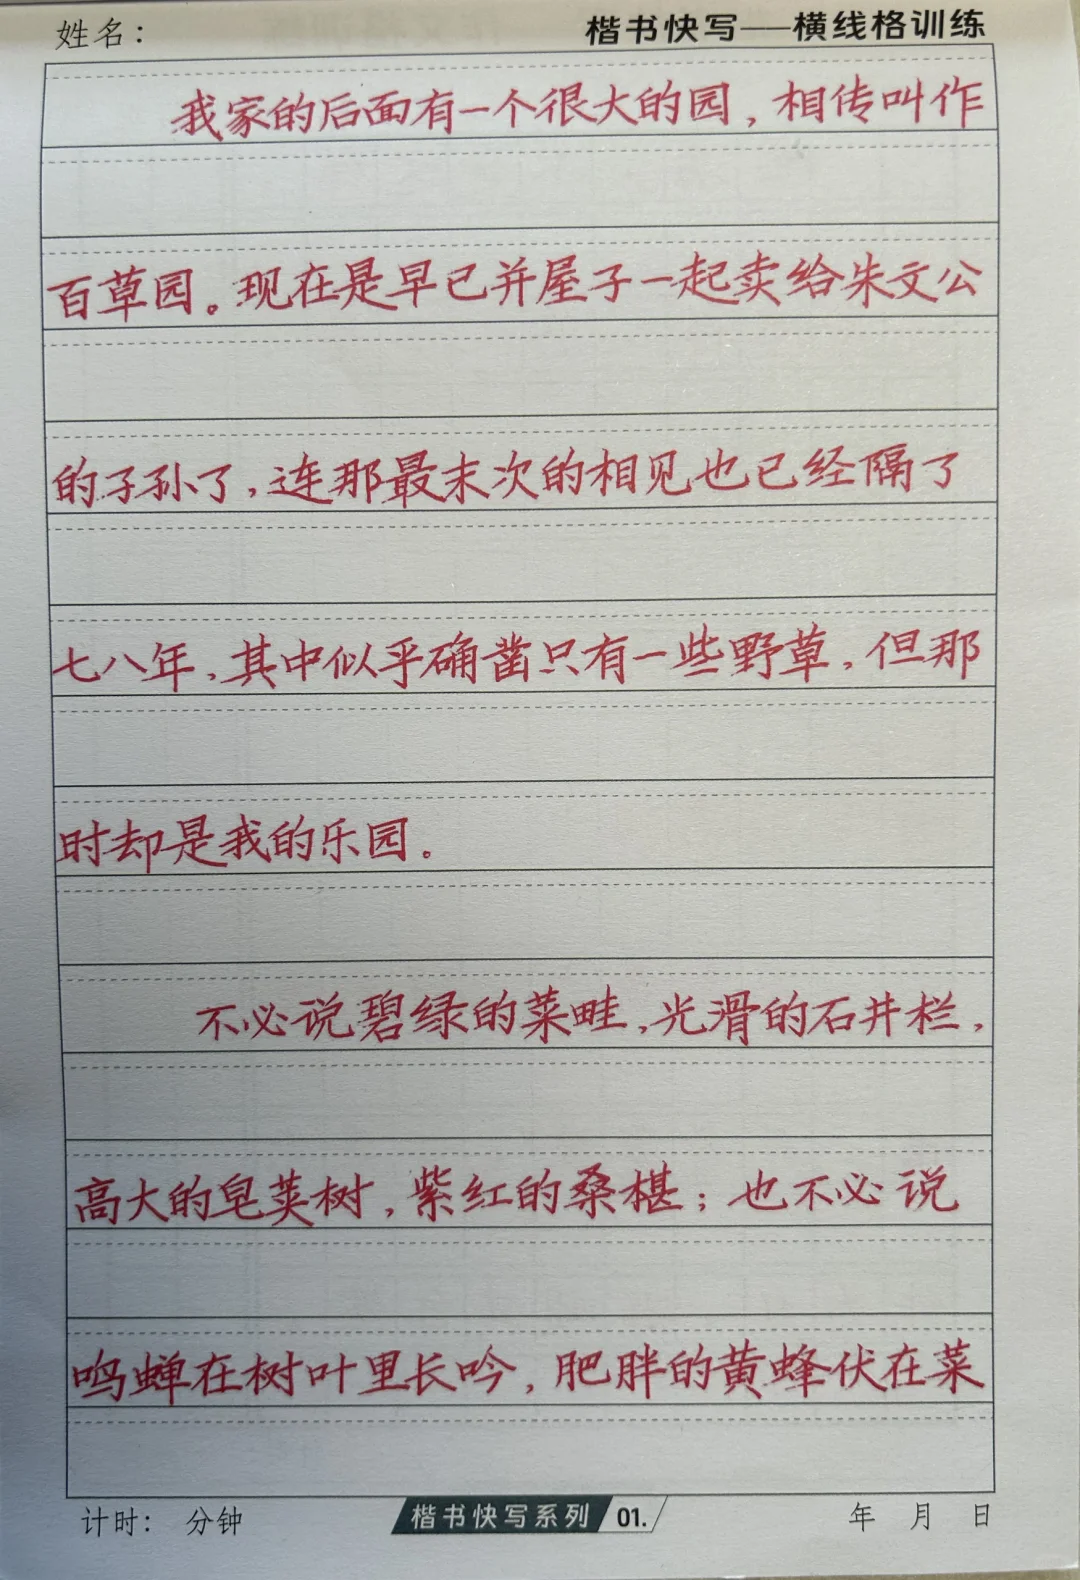 姓名：
楷书快写——横线格训练
我家的后面有一个很大的园，相传叫作
百草园。现在是早已并屋子一起卖给朱文公
的子孙了，连那最末次的相见也已经隔了
七八年，其中似乎确凿只有一些野草，但那
时却是我的乐园。
不必说碧绿的菜畦，光滑的石井栏，
高大的皂荚树，紫红的桑椹；也不必说
鸣蝉在树叶里长吟，肥胖的黄蜂伏在菜
计时： 分钟
楷书快写系列 01.
年 月 日